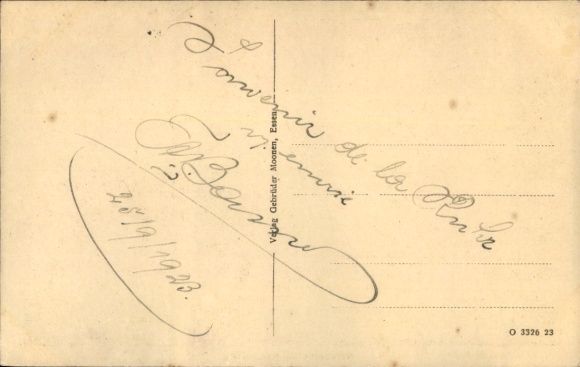 Souvenir de la Ruhr
25/9/1923
Verlag Gebrüder Moonen, Essen
O 3326 23